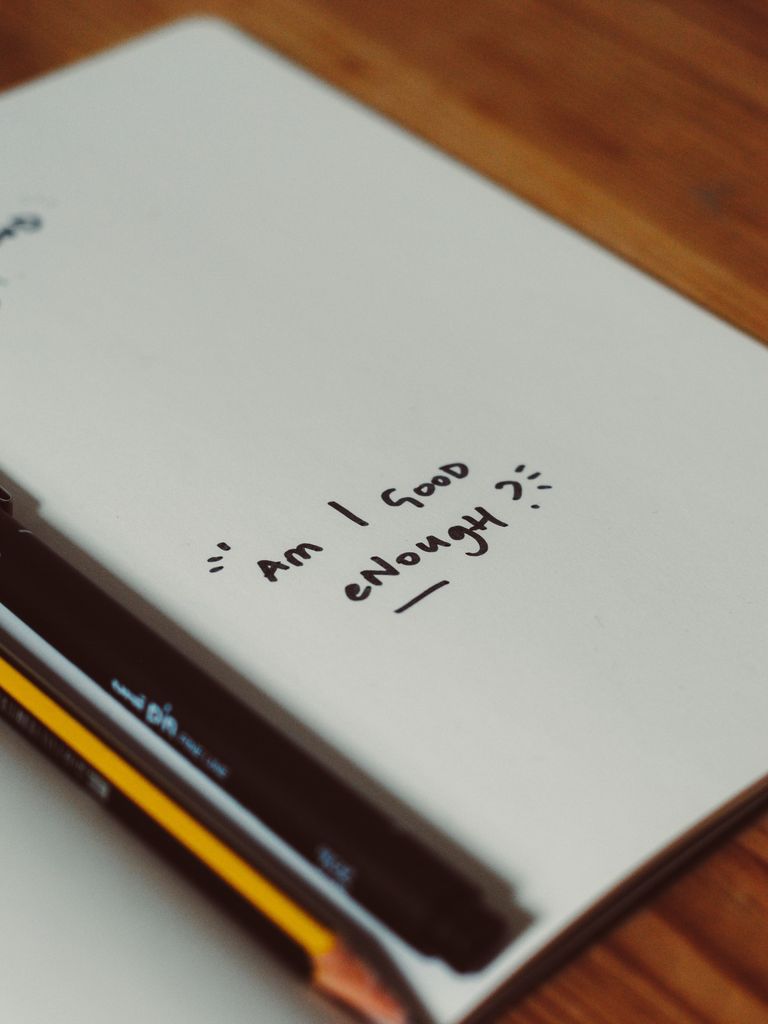 Am I GOOD
eNougH?
uni PiN